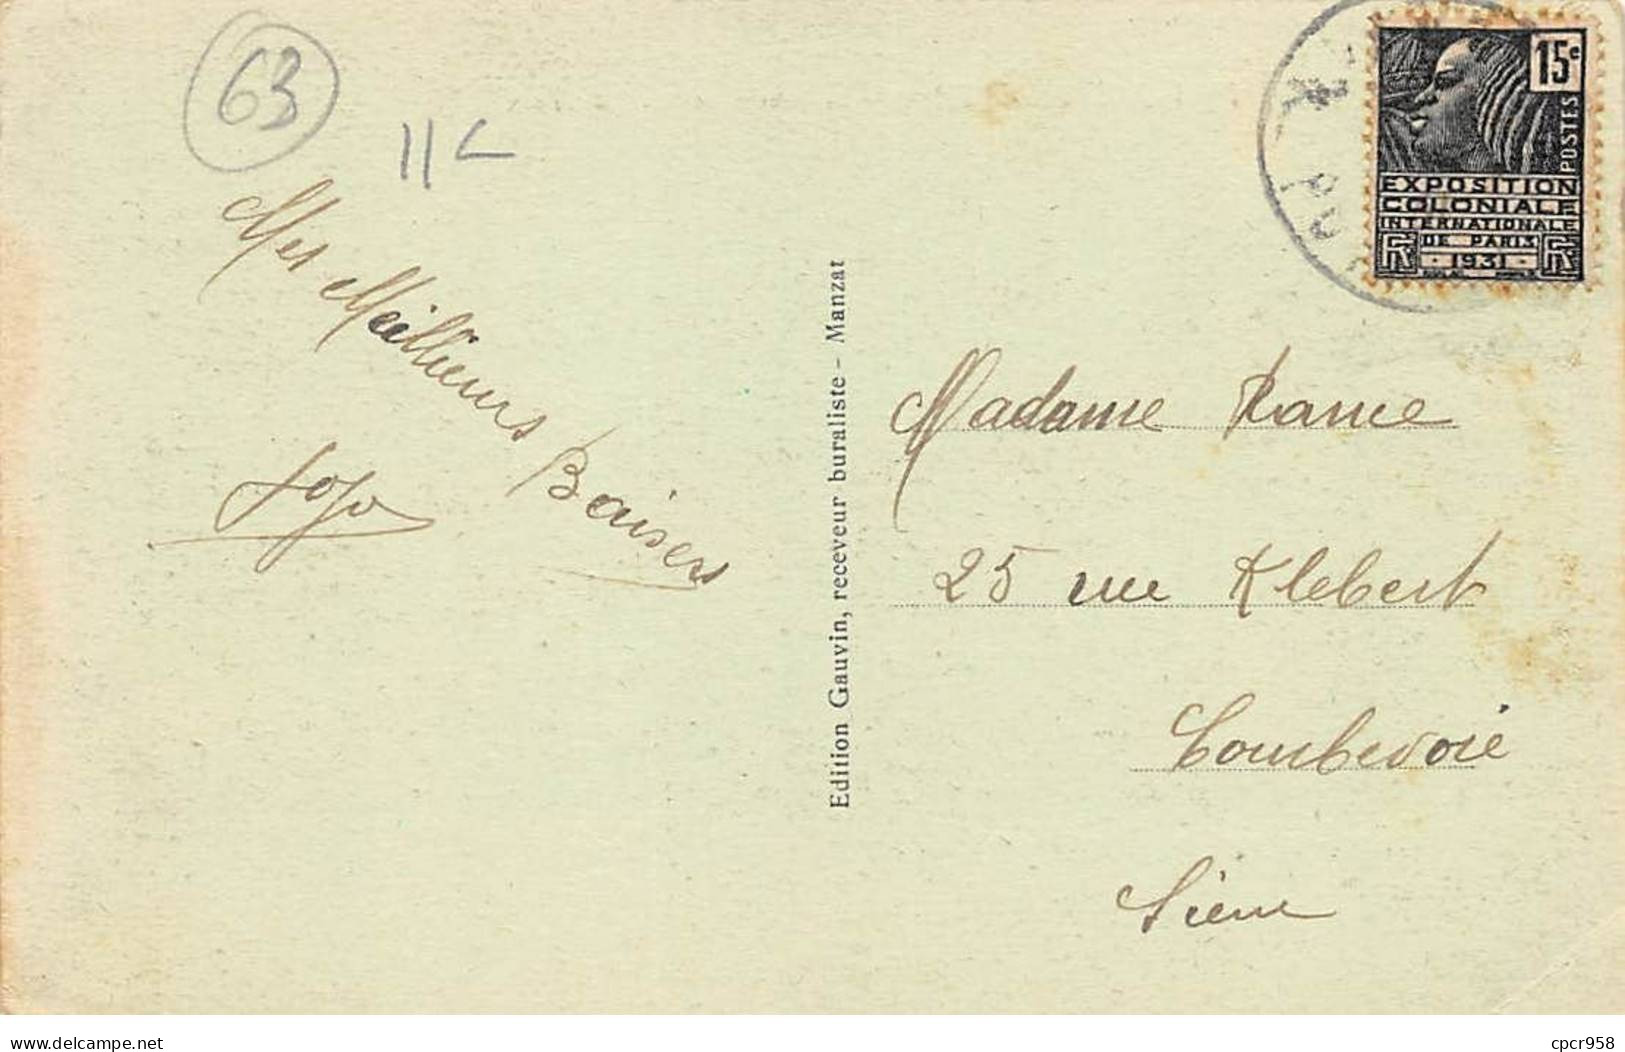 63
11€
Mes Meilleurs Baisers
Jojo
Edition Gauvin, receveur buraliste - Manzat
15c
POSTES
EXPOSITION
COLONIALE
INTERNATIONALE
DE PARIS
RF 1931 RF
Madame Rance
25 rue Klebert
Courbevoie
Siene
www.delcampe.net
cpcr958